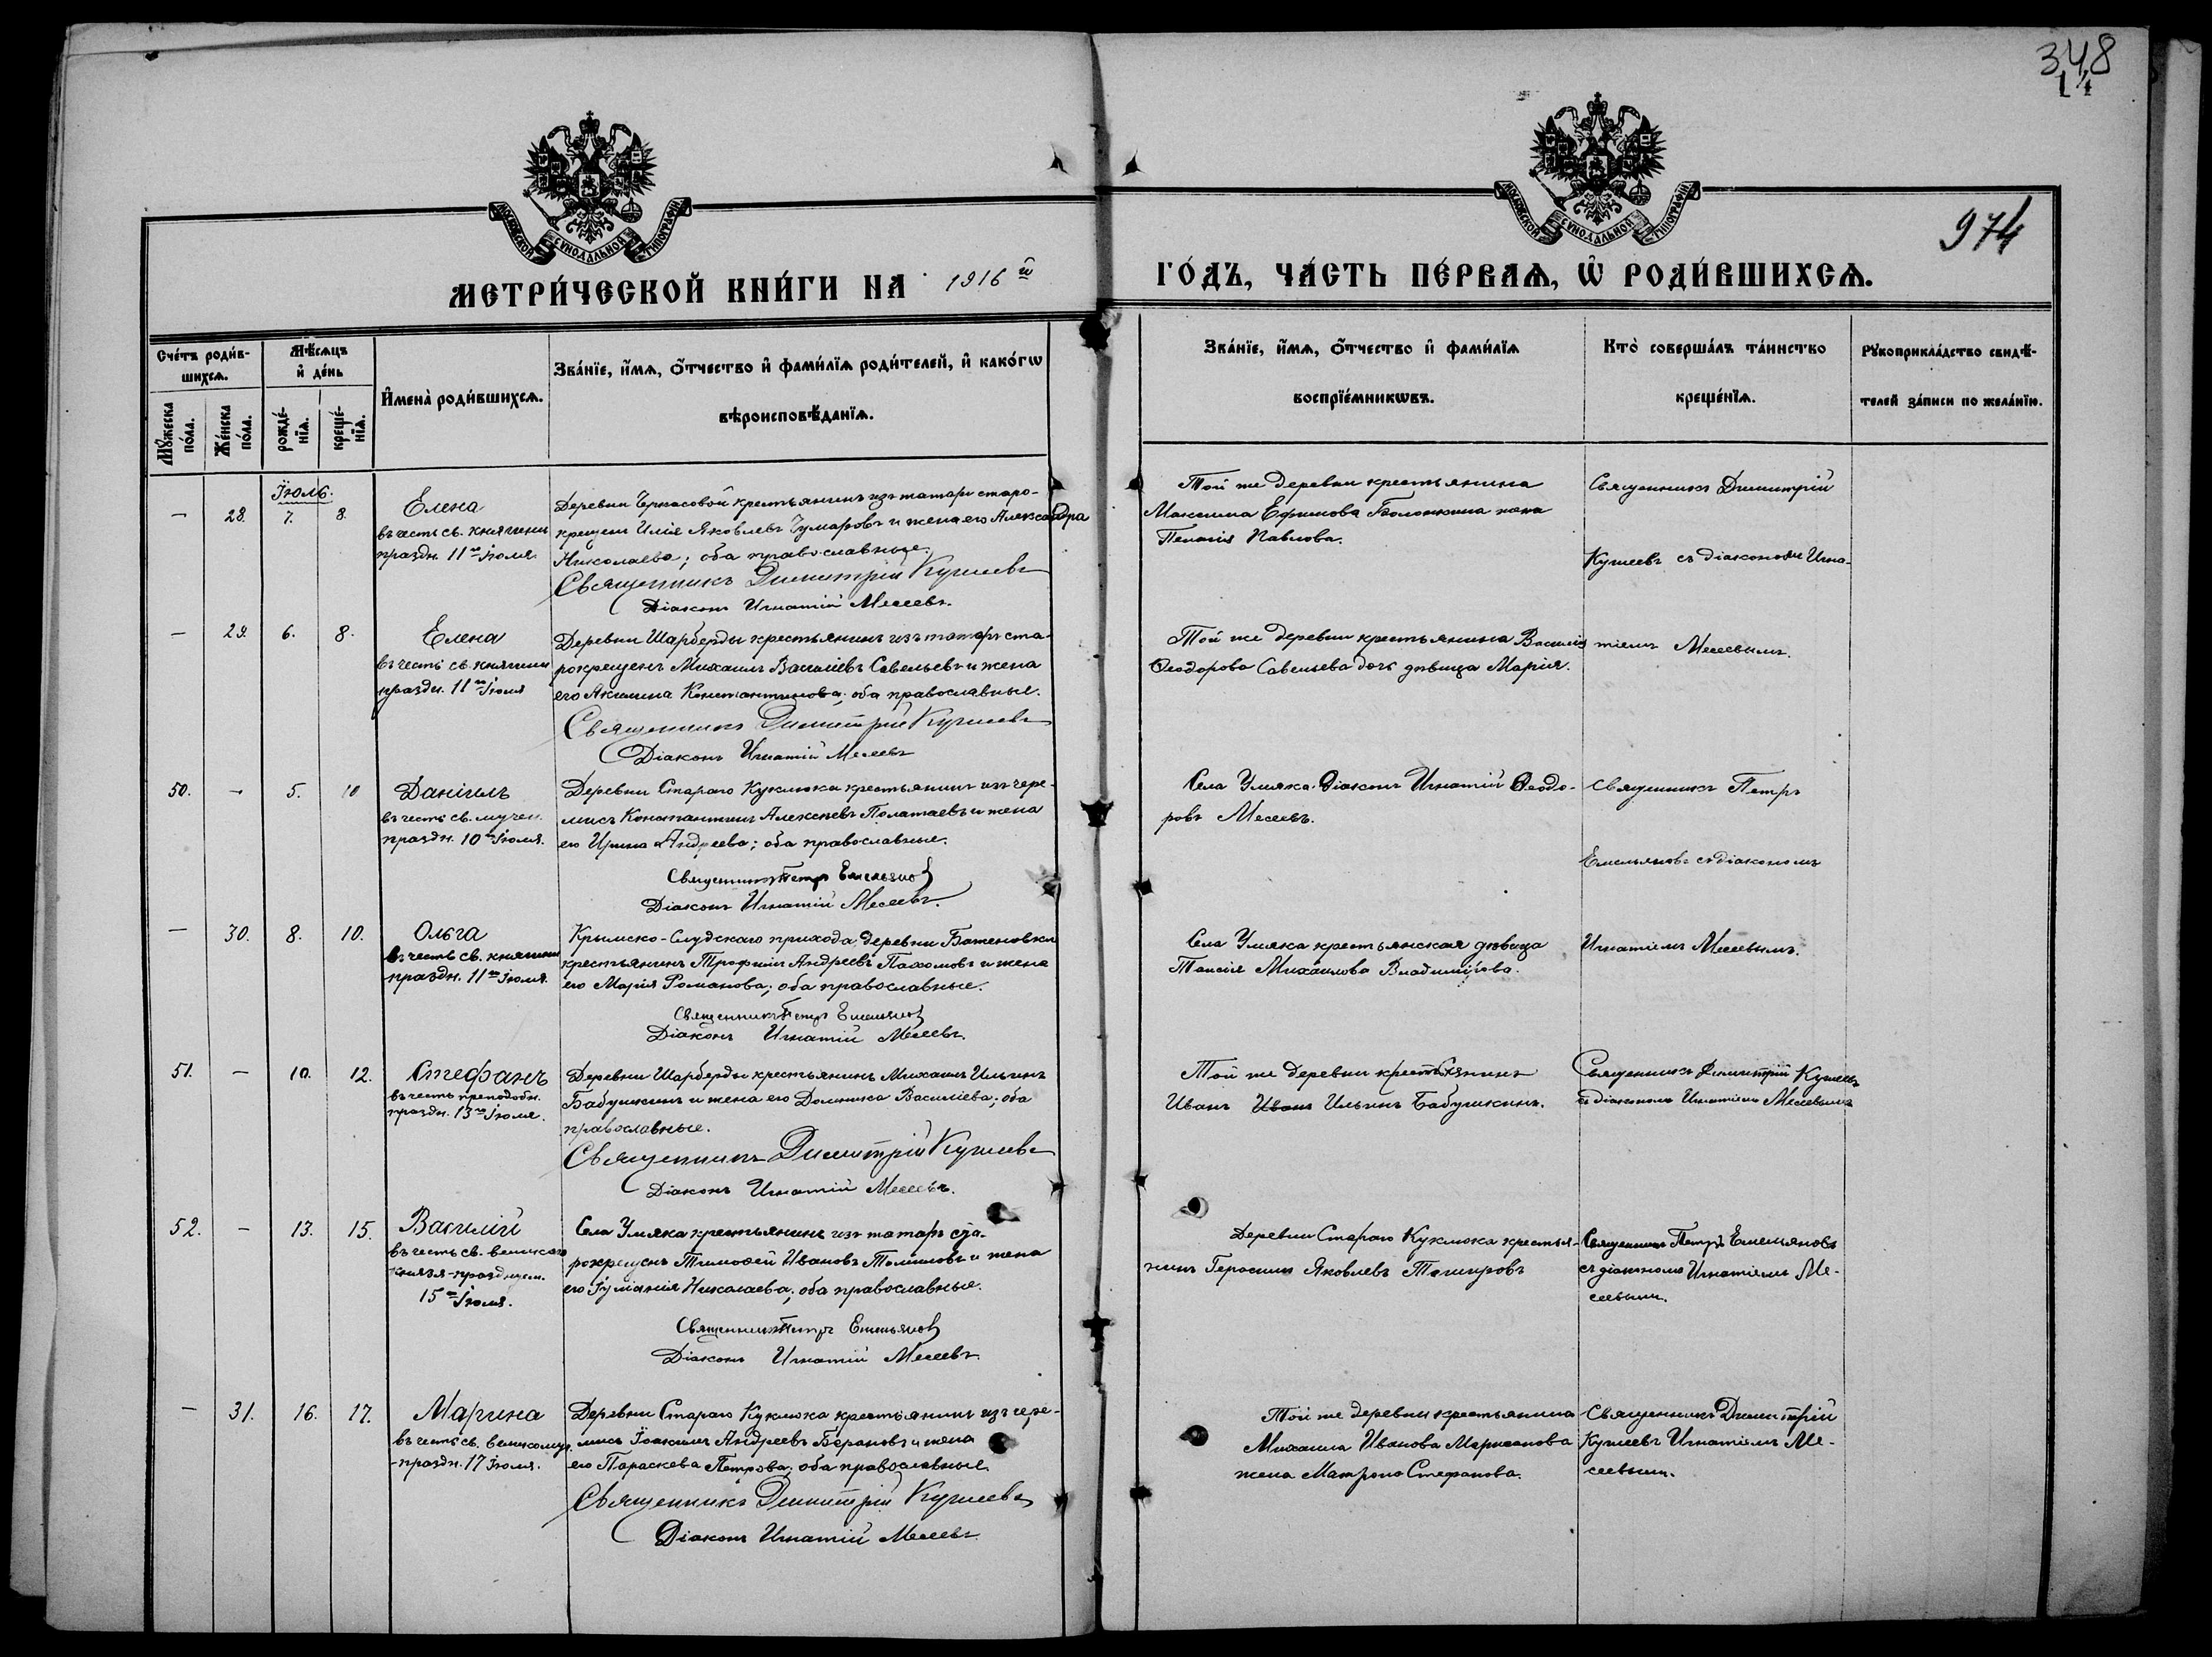 348
14
974
МОСКОВСКОЙ СѴНОДАЛЬНОЙ ТИПОГРАФІИ
МОСКОВСКОЙ СѴНОДАЛЬНОЙ ТИПОГРАФІИ
МЕТРИ́ЧЕСКОЙ КНИ́ГИ НА 1916й
ГО́ДЪ, ЧА́СТЬ ПЕ́РВАѦ, Ѡ҆ РОДИ́ВШИХСѦ.
Сче́тъ роди́в-
шихсѧ.
Мꙋ́жеска по́ла.
Же́нска по́ла.
Мѣ́сѧцъ и҆ де́нь
рожде́-
нїѧ.
креще́-
нїѧ.
И҆мена̀ роди́вшихсѧ.
Зва́нїе, и҆́мѧ, ѻ҆́тчество и҆ фами́лїѧ роди́телей, и҆ како́гѡ
вѣроисповѣ́данїѧ.
Зва́нїе, и҆́мѧ, ѻ҆́тчество и҆ фами́лїѧ
воспрїе́мникѡвъ.
Кто̀ соверша́лъ та́инство
креще́нїѧ.
Рꙋкоприкла́дство свидѣ́-
телей за́писи по жела́нїю.
Іюль.
— 28. 7. 8. Елена
въ честь св. княгини
праздн. 11го Іюля
Деревни Черкасовой крестьянинъ изъ татаръ старо-
крещенъ Илія Яковлевъ Чумаровъ и жена его Александра
Николаева; оба православные.
Священникъ Димитрій Кушевъ
Діаконъ Игнатій Месеевъ.
Той же деревни крестьянина
Максима Ефимова жена
Пелагія Павлова.
Священникъ Димитрій
Кушеевъ съ діакономъ Игна-
— 29. 6. 8. Елена
въ честь св. княгини
праздн. 11го Іюля
Деревни Шарберды крестьянинъ изъ татаръ ста-
рокрещенъ Михаилъ Василіевъ Савельевъ и жена
его Акилина Константинова; оба православные.
Священникъ Димитрій Кушеевъ
Діаконъ Игнатій Месеевъ
Той же деревни крестьянина Василія
Ѳеодорова Савельева дочь дѣвица Марія.
тіемъ Месеевымъ.
50. — 5. 10 Даніилъ
въ честь св. мучен.
праздн. 10го Іюля.
Деревни Стараго Куклюка крестьянинъ изъ чере-
мисъ Константинъ Алексѣевъ Полатаевъ и жена
его Ирина Андреева; оба православные.
Священникъ Петръ Емельянов
Діаконъ Игнатій Месеевъ.
Села Умяка Діаконъ Игнатій Ѳеодо-
ровъ Месеевъ.
Священникъ Петръ
Емельяновъ съ діакономъ
— 30. 8. 10. Ольга
въ честь св. княгини
праздн. 11го Іюля.
Крымско-Слудскаго прихода деревни
крестьянинъ Трофимъ Андреевъ Пахомовъ и жена
его Марія Романова; оба православные.
Священникъ Петръ Емельянов
Діаконъ Игнатій Месеевъ.
Села Умяка крестьянская дѣвица
Таисія Михаилова Владимірова.
Игнатіемъ Месеевымъ.
51. — 10. 12. Стефанъ
въ честь преподобн.
праздн. 13го Іюля.
Деревни Шарберды крестьянинъ Михаилъ Ильинъ
Бабушкинъ и жена его Домника Василіева; оба
православные.
Священникъ Димитрій Кушеевъ
Діаконъ Игнатій Месеевъ.
Той же деревни крестьянинъ
Иванъ Иванъ Ильинъ Бабушкинъ.
Священникъ Димитрій Кушеевъ
съ діакономъ Игнатіемъ Месеевымъ
52. — 13. 15. Василій
въ честь св. великаго
князя - празднуем.
15го Іюля.
Села Умяка крестьянинъ изъ татаръ ста-
рокрещенъ Тимоѳей Ивановъ и жена
его Іуліанія Николаева; оба православные.
Священникъ Петръ Емельянов
Діаконъ Игнатій Месеевъ.
Деревни Стараго Куклюка крестья-
нинъ Герасимъ Яковлевъ Тагировъ
Священникъ Петръ Емельяновъ
съ діакономъ Игнатіемъ Ме-
сеевымъ.
— 31. 16. 17. Марина
въ честь св. великомуч.
- праздн. 17 Іюля.
Деревни Стараго Куклюка крестьянинъ изъ чере-
мисъ Іоакимъ Андреевъ Барановъ и жена
его Параскева Петрова; оба православные.
Священникъ Димитрій Кушеевъ
Діаконъ Игнатій Месеевъ
Той же деревни крестьянина
Михаила Иванова
жена Матрона Стефанова.
Священникъ Димитрій
Кушеевъ Игнатіемъ Ме-
сеевымъ.